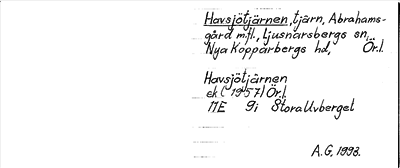 Havsjötjärnen, tjärn, Abrahams-
gård m.fl., Ljusnarsbergs sn,
Nya Kopparbergs hd, Ör.l.
Havsjötjärnen
ek (1957) Ör.l.
11E 9i Stora Uvberget
A.G, 1993.